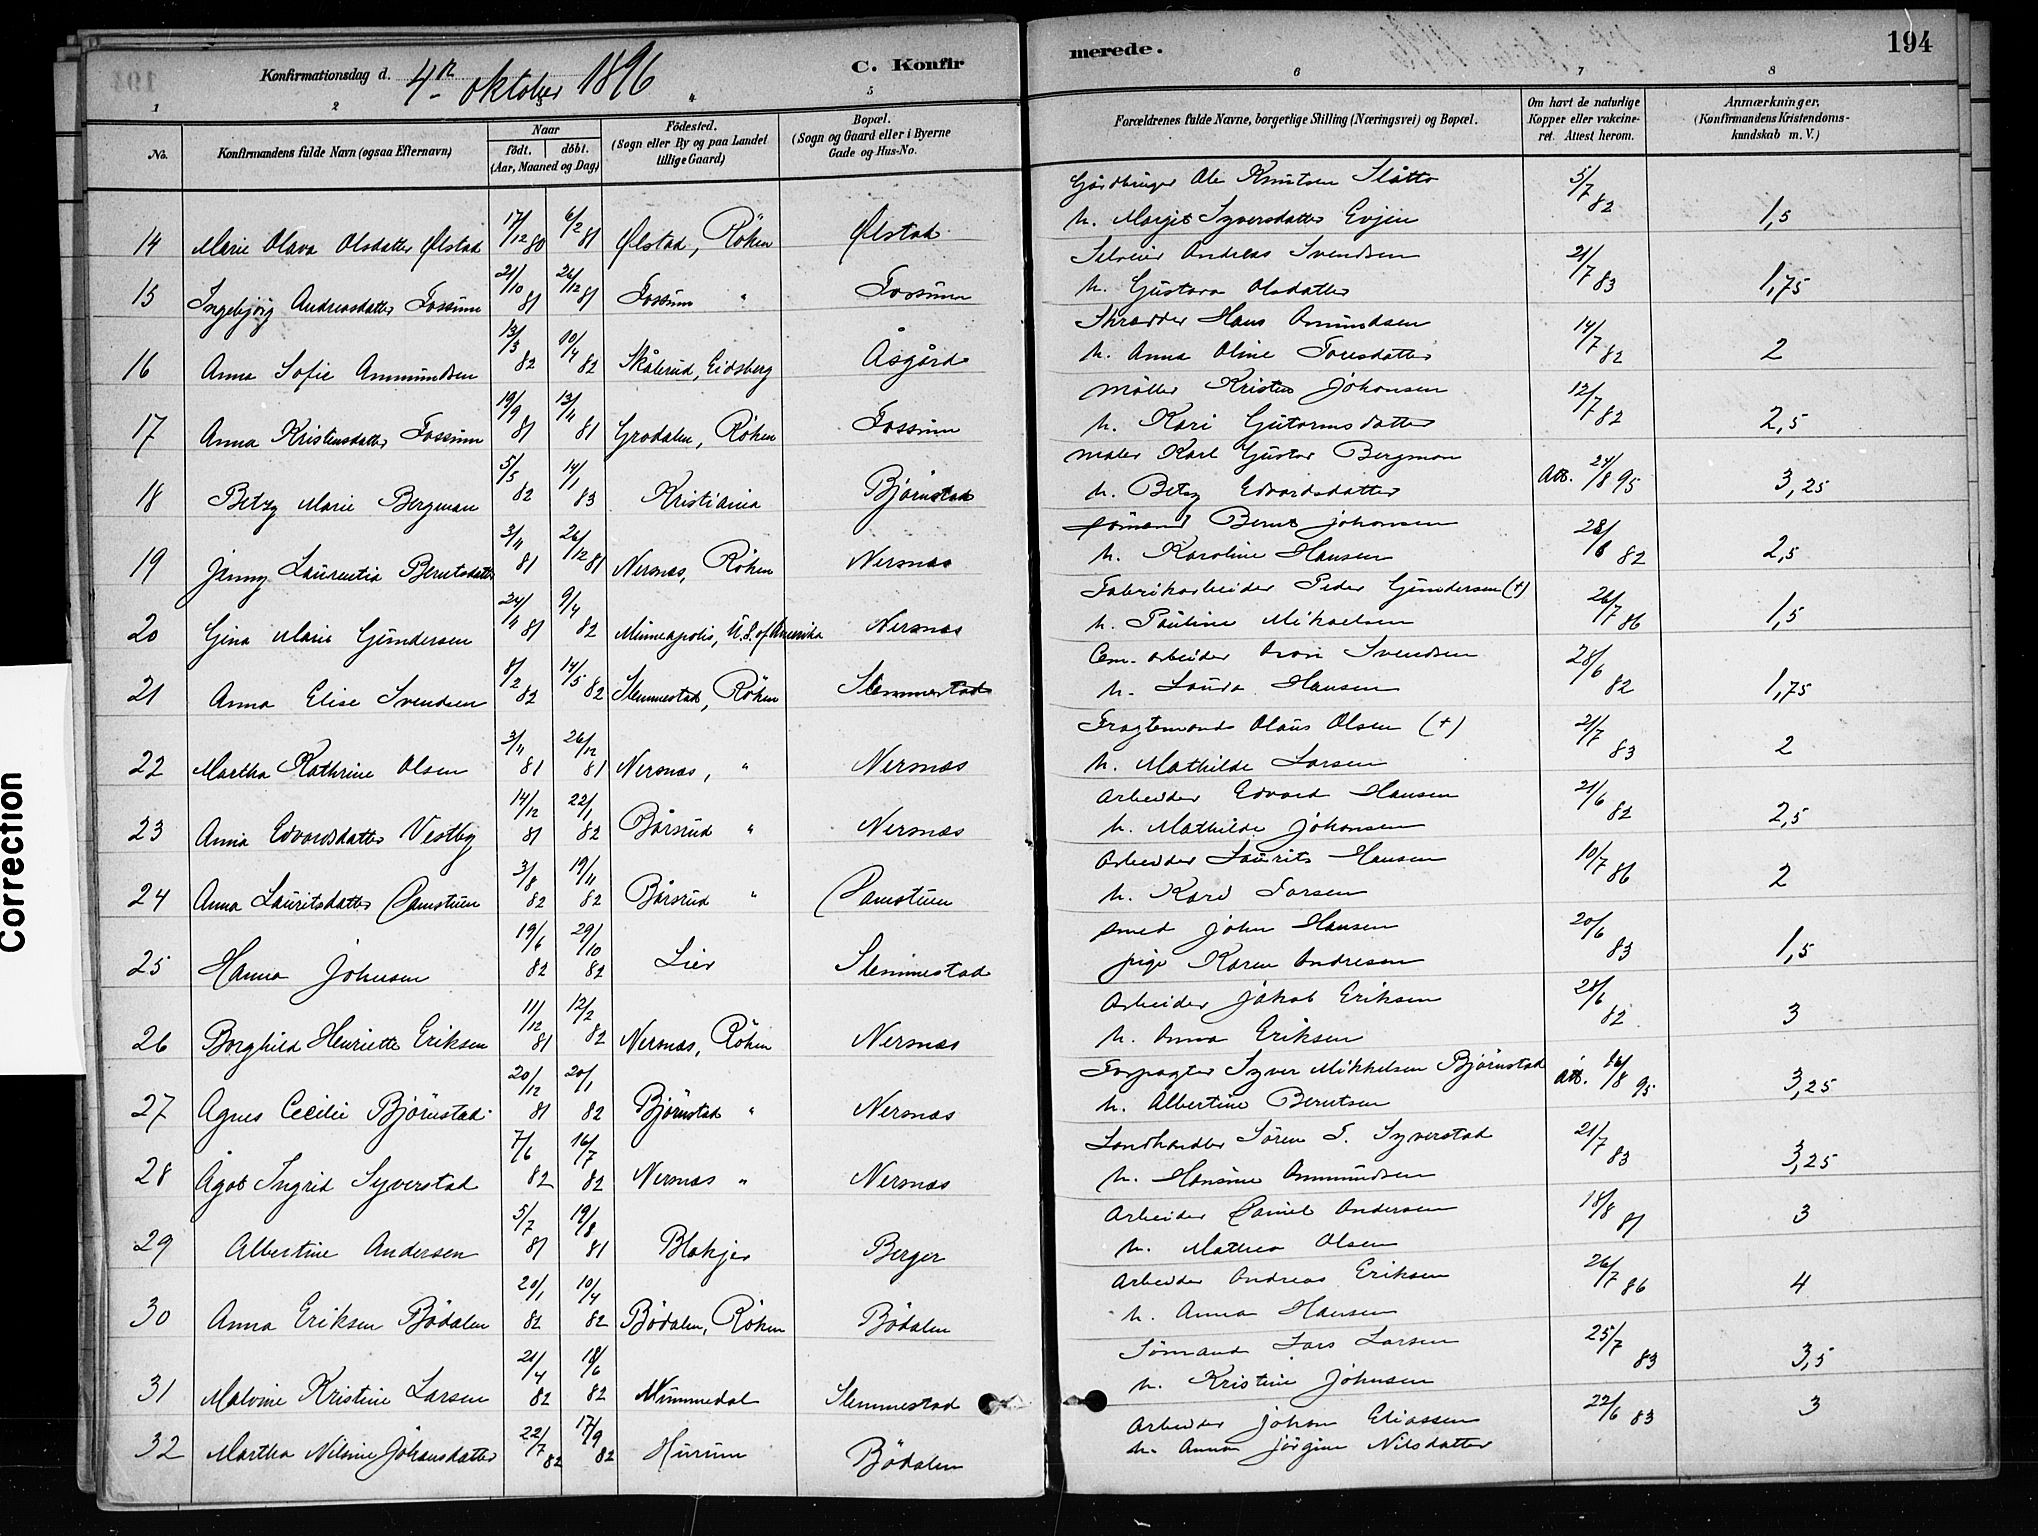 Konfirmationsdag d. 4de oktober 1896 C. Konfir
merede. 194
1 2 3 4 5 6 7 8
No. Konfirmandens fulde Navn (ogsaa Efternavn) Naar födt. döbt. (Aar, Maaned og Dag) Födested. (Sogn eller By og paa Landet tillige Gaard) Bopæl. (Sogn og Gaard eller i Byerne Gade og Hus-No. Forældrenes fulde Navne, borgerlige Stilling (Næringsvei) og Bopæl. Om havt de naturlige Kopper eller vakcineret. Attest herom. Anmærkninger. (Konfirmandens Kristendomskundskab m. V.)
14 Marie Olava Olsdatter Ølstad 17/12 80 6/2 81 Ølstad, Röken Ølstad Gårdbruger Ole Knutsen Slåtto 5/7 82 1,5
h. Margit Syversdatter Evjen
15 Ingebjörg Andreasdatter Fossum 21/10 81 26/12 81 Fossum " Fossum Selveier Andreas Svendsen 21/7 83 1,75
h. Gustava Olsdatter
16 Anna Sofie Ammundsen 13/3 82 10/4 82 Skålerud, Eidsberg Åsgård Skrædder Hans Amundsen 14/7 82 2
h. Anna Oline Toresdatter
17 Anna Kristensdatter Fossum 19/9 81 13/11 81 Grodalen, Röken Fossum Möller Kristen Johansen 12/7 82 2,5
h. Kari Gutormsdatter
18 Betzy Marie Bergman 5/5 82 14/1 83 Kristiania Björnstad Maler Karl Gustav Bergman Att. 24/8 95 3,25
h. Betzy Edvardsdatter
19 Jenny Laurentia Berntsdatter 3/11 81 26/12 81 Nersnæs, Röken Nersnæs Sömand Bernt Johansen 28/6 82 2,5
h. Karoline Hansen
20 Gina Marie Gundersen 24/11 81 9/4 82 Minneapolis, U.S. of Amerika Nersnæs Fabrikarbeider Peder Gundersen (+) 26/7 86 1,5
h. Pauline Mikaelsen
21 Anna Elise Svendsen 8/2 82 14/5 82 Slemmestad, Röken Slemmestad Cem. arbeider Aron Svendsen 28/6 82 1,75
h. Laura Hansen
22 Martha Kathrine Olsen 3/11 81 26/12 81 Nersnæs, " Nersnæs Fragtemand Olaus Olsen (+) 21/7 83 2
h. Mathilde Larsen
23 Anna Edvardsdatter Vestby 14/12 81 22/1 82 Bårsrud " Nersnæs Arbeider Edvard Hansen 21/6 82 2,5
h. Mathilde Johansen
24 Anna Lauritsdatter Damstuen 3/8 82 19/11 82 Bårsrud " Damstuen Arbeider Laurits Hansen 10/7 86 2
h. Karo Larsen
25 Hanna Johnsen 19/6 82 29/10 82 Lier Slemmestad Smed John Hansen 20/6 83 1,5
pige Karen Andresen
26 Borghild Henriette Eriksen 11/12 81 12/2 82 Nersnæs, Röken Nersnæs Arbeider Jakob Eriksen 28/6 82 3
h. Anna Eriksen
27 Agnes Cecilie Björnstad 20/12 81 20/1 82 Björnstad " Nersnæs Forpagter Syver Mikkelsen Björnstad Att. 26/8 95 3,25
h. Albertine Berntsen
28 Ågot Ingrid Syverstad 7/6 82 16/7 82 Nersnæs " Nersnæs Landhandler Sören T. Syverstad 21/7 83 3,25
h. Hansine Ammundsen
29 Albertine Andersen 5/7 81 19/8 81 Blakjer Berger Arbeider Daniel Andersen 18/8 81 3
h. Mathea Olsen
30 Anna Eriksen Bödalen 20/1 82 10/4 82 Bödalen, Röken Bödalen Arbeider Andreas Eriksen 26/7 86 4
h. Anna Hansen
31 Malvine Kristine Larsen 21/4 82 18/6 82 Nummedal Slemmestad Sömand Lars Larsen 25/7 83 3,5
h. Kristine Johnsen
32 Martha Nilsine Johansdatter 22/7 82 17/9 82 Hurum Bödalen Arbeider Johan Eliassen 22/6 83 3
h. Anna Jörgine Nilsdatter
Correction